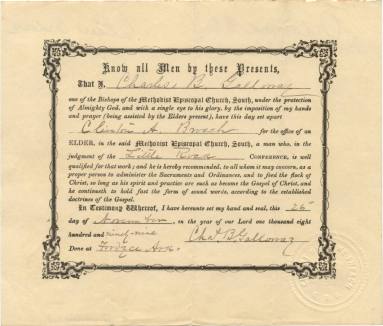 Know all Men by these Presents,
That I, Charles B. Galloway
one of the Bishops of the Methodist Episcopal Church, South, under the protection
of Almighty God, and with a single eye to his glory, by the imposition of my hands
and prayer (being assisted by the Elders present), have this day set apart
Clinton A. for the office of an
ELDER, in the said Methodist Episcopal Church, South, a man who, in the
judgment of the Little Rock CONFERENCE, is well
qualified for that work; and he is hereby recommended, to all whom it may concern, as a
proper person to administer the Sacraments and Ordinances, and to feed the flock of
Christ, so long as his spirit and practice are such as become the Gospel of Christ, and
he continueth to hold fast the form of sound words, according to the established
doctrines of the Gospel.
In Testimony Whereof, I have hereunto set my hand and seal, this 26
day of in the year of our Lord one thousand eight
hundred and ninety-nine Chas. B. Galloway
Done at Fordyce Ark.